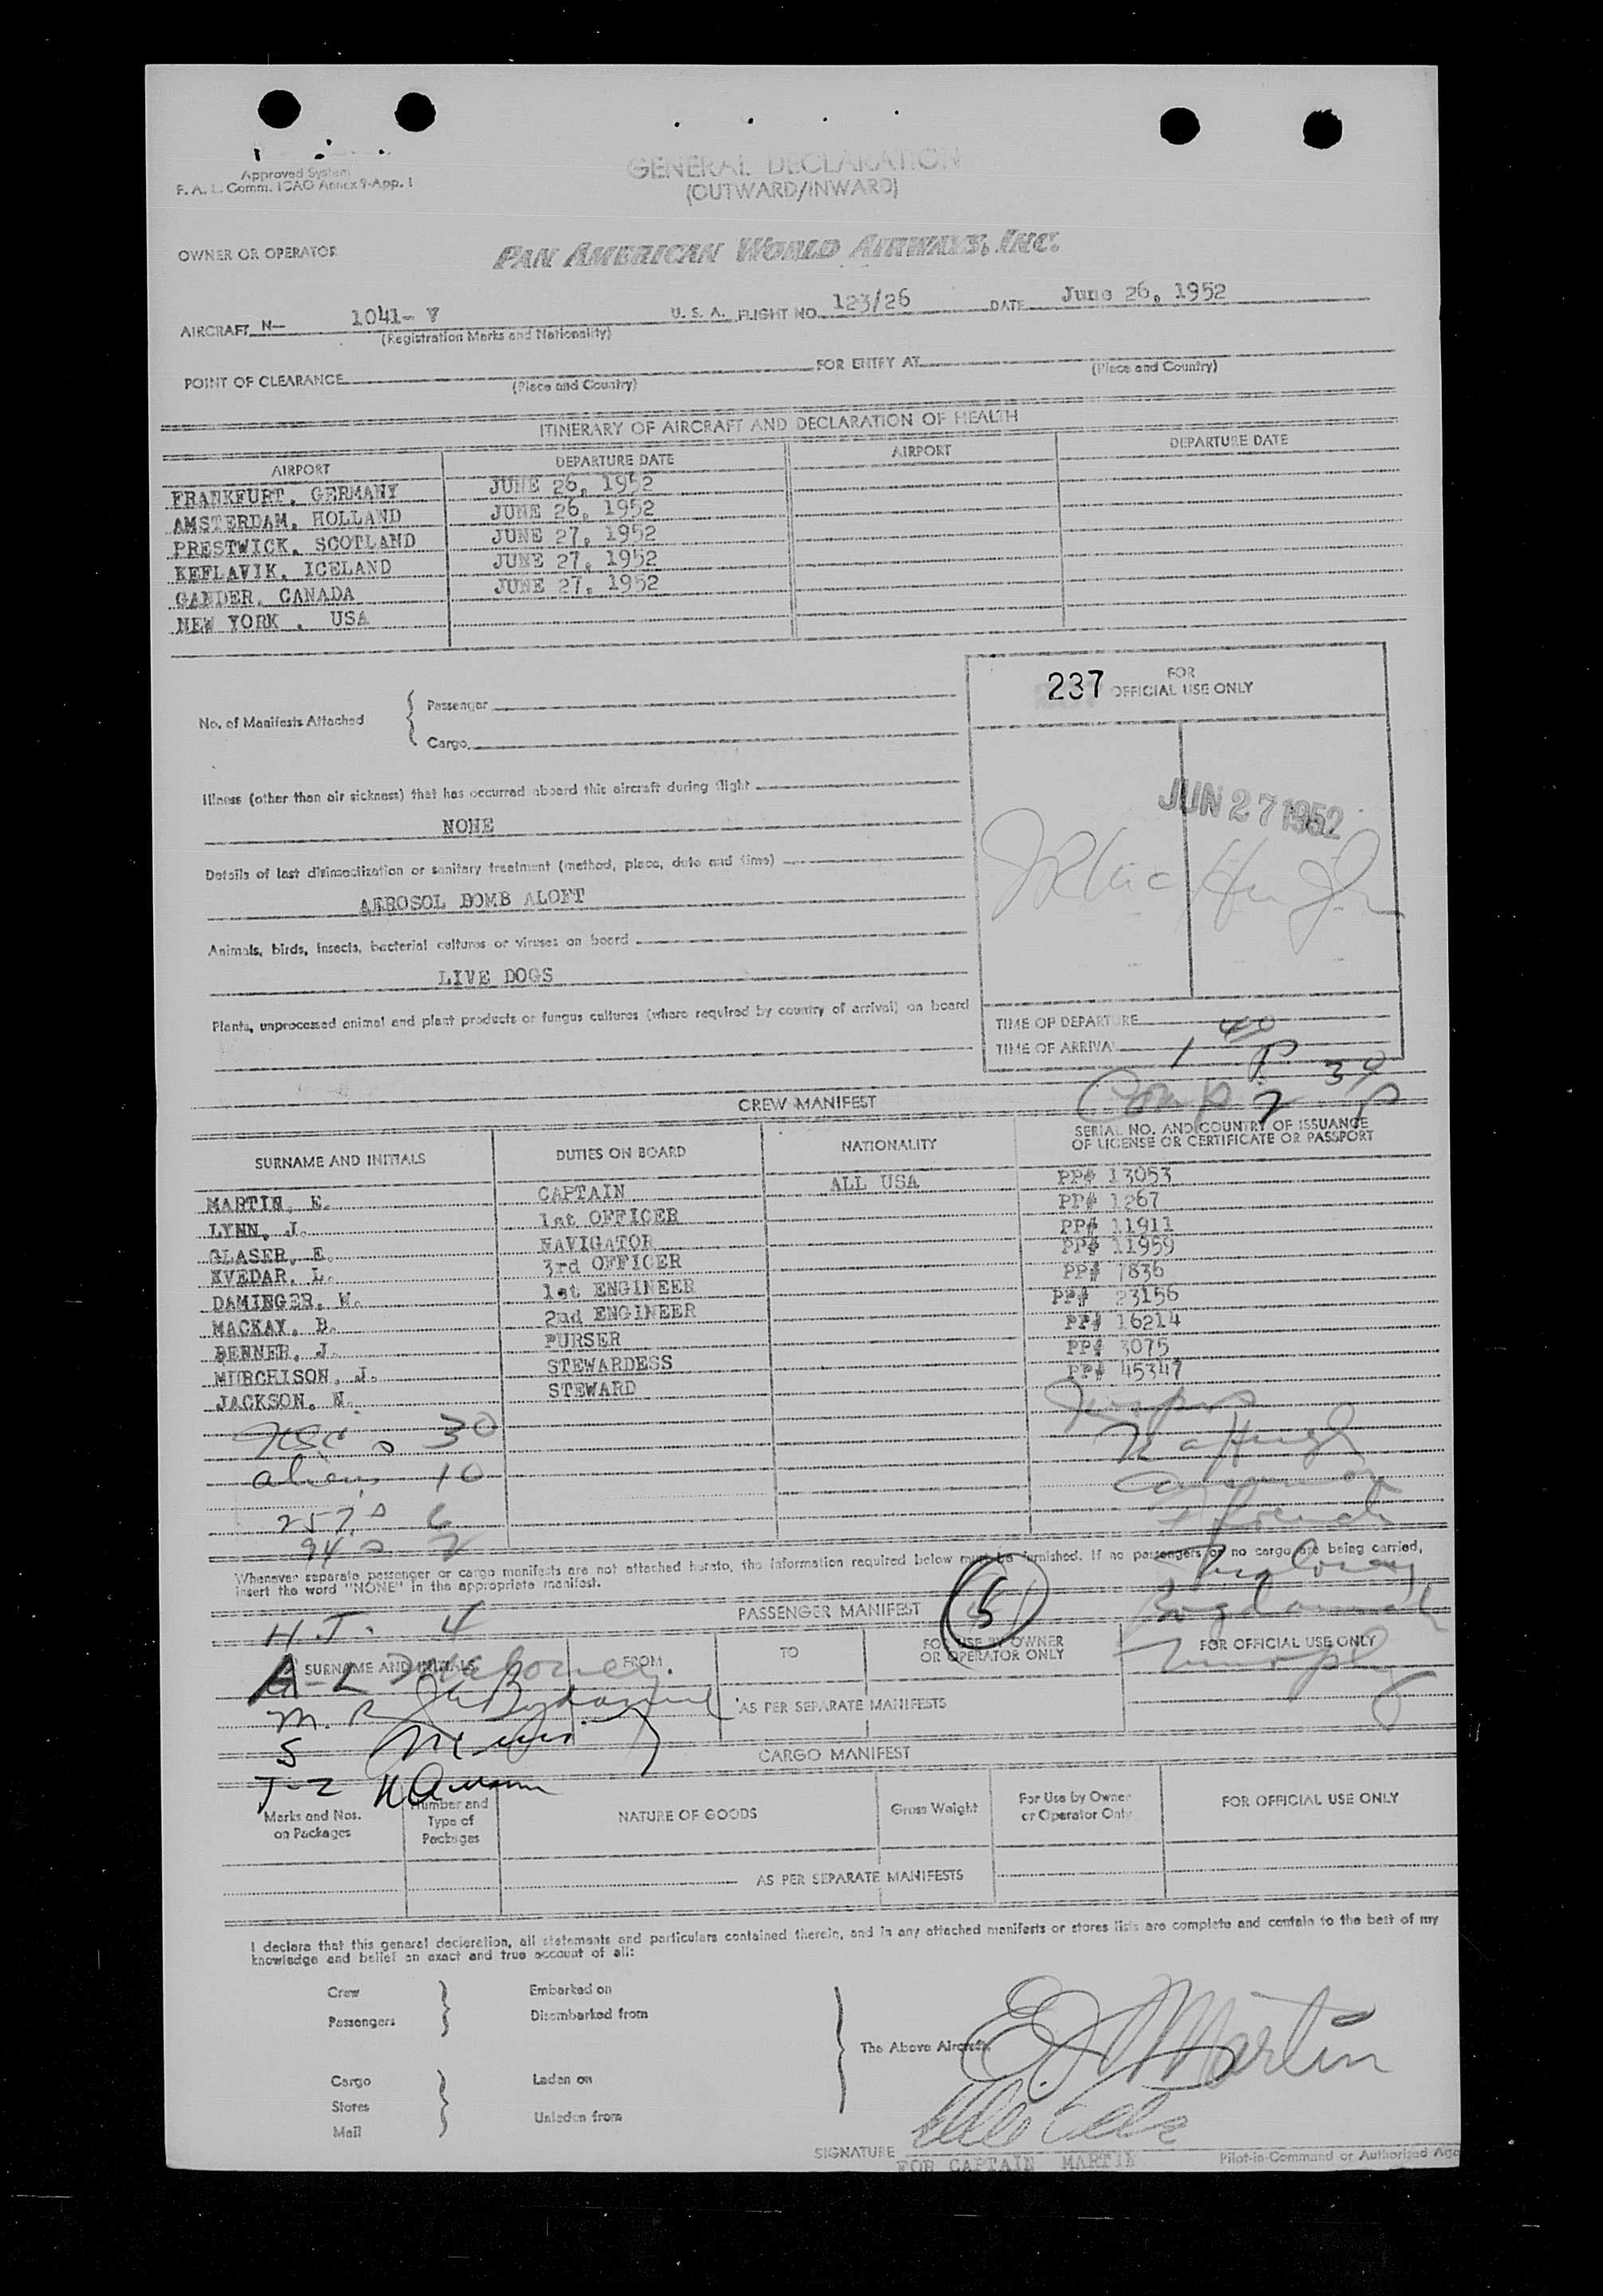 Approved System
F. A. L. Comm. ICAO Annex 9-App. 1
GENERAL DECLARATION
(OUTWARD/INWARD)
OWNER OR OPERATOR PAN AMERICAN WORLD AIRWAYS, INC.
AIRCRAFT N- 1041- V U. S. A. FLIGHT NO. 123/26 DATE June 26, 1952
(Registration Marks and Nationality)
POINT OF CLEARANCE FOR ENTRY AT
(Place and Country) (Place and Country)
ITINERARY OF AIRCRAFT AND DECLARATION OF HEALTH
AIRPORT DEPARTURE DATE AIRPORT DEPARTURE DATE
FRANKFURT, GERMANY JUNE 26, 1952
AMSTERDAM, HOLLAND JUNE 26, 1952
PRESTWICK, SCOTLAND JUNE 27, 1952
KEFLAVIK, ICELAND JUNE 27, 1952
GANDER, CANADA JUNE 27, 1952
NEW YORK , USA
237 FOR
OFFICIAL USE ONLY
No. of Manifests Attached
Passenger
Cargo
JUN 27 1952
Illness (other than air sickness) that has occurred aboard this aircraft during flight
NONE
Details of last disinsectization or sanitary treatment (method, place, date and time)
AEROSOL BOMB ALOFT
Animals, birds, insects, bacterial cultures or viruses on board
LIVE DOGS
Plants, unprocessed animal and plant products or fungus cultures (where required by country of arrival) on board
TIME OF DEPARTURE
TIME OF ARRIVAL 1 40 P
Comp 2 30 P
CREW MANIFEST
SURNAME AND INITIALS DUTIES ON BOARD NATIONALITY SERIAL NO. AND COUNTRY OF ISSUANCE
OF LICENSE OR CERTIFICATE OR PASSPORT
MARTIN, E. CAPTAIN ALL USA PP# 13053
LYNN, J. 1st OFFICER PP# 1267
GLASER, E. NAVIGATOR PP# 11911
KVEDAR, L. 3rd OFFICER PP# 11959
DAMINGER, W. 1st ENGINEER PP# 7836
MACKAY, B. 2nd ENGINEER PP# 23156
BENNER, J. PURSER PP# 16214
MURCHISON, J. STEWARDESS PP# 3075
JACKSON, N. STEWARD PP# 45347
30
aliens 10
257's 6
94's 2
Whenever separate passenger or cargo manifests are not attached hereto, the information required below must be furnished. If no passengers or no cargo are being carried,
insert the word "NONE" in the appropriate manifest.
H.T. 4
PASSENGER MANIFEST
5
SURNAME AND INITIALS FROM TO FOR USE BY OWNER
OR OPERATOR ONLY FOR OFFICIAL USE ONLY
A-L
M. R
AS PER SEPARATE MANIFESTS
S
CARGO MANIFEST
T-Z
Marks and Nos.
on Packages Number and
Type of
Packages NATURE OF GOODS Gross Weight For Use by Owner
or Operator Only FOR OFFICIAL USE ONLY
AS PER SEPARATE MANIFESTS
I declare that this general declaration, all statements and particulars contained therein, and in any attached manifests or stores lists are complete and contain to the best of my
knowledge and belief an exact and true account of all:
Crew Embarked on
Passengers Disembarked from
The Above Aircraft
E. Martin
Cargo Laden on
Stores
Mail Unladen from
SIGNATURE
FOR CAPTAIN MARTIN Pilot-in-Command or Authorized Age